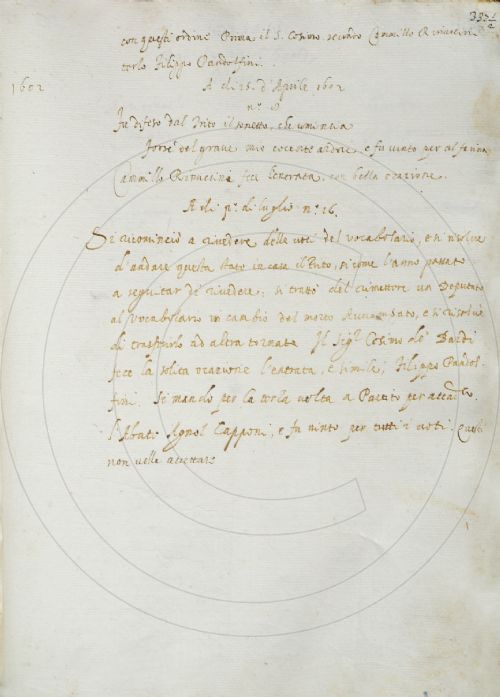 337 1/2
con questi ordini Prima il S. Cosimo, secondo Cammillo Rinuccini
terzo Filippo Pandolfini.
1602
A di 25. d'Aprile 1602
n.° 9
Fu difeso dal Trito il sonetto, che comincia
Forse del graue mio cocente ardore, e fu uinto per
Cammillo Rinuccini fece l'entrata, con bella orazione.
A di p.° di luglio n.° 16.
Si ricominciò a riuedere delle uoci del vocabolario, e si risolue
d'andare questa state in casa il Trito, si come l'anno passato
a seguitar di riuedere; si trattò del rimettere un Deputato
al Vocabolario in cambio del morto, e si risolue
di trasferirlo ad altra tornata. Il Sig.r Cosimo de' Bardi
fece la solita orazione l'entrata, e simile, Filippo Pandol-
fini. Si mandò per la terza uolta a Partito per accad.co
l'Abate Agnol Capponi, e fu uinto per tutti i uoti. Questi
non uolle accettare